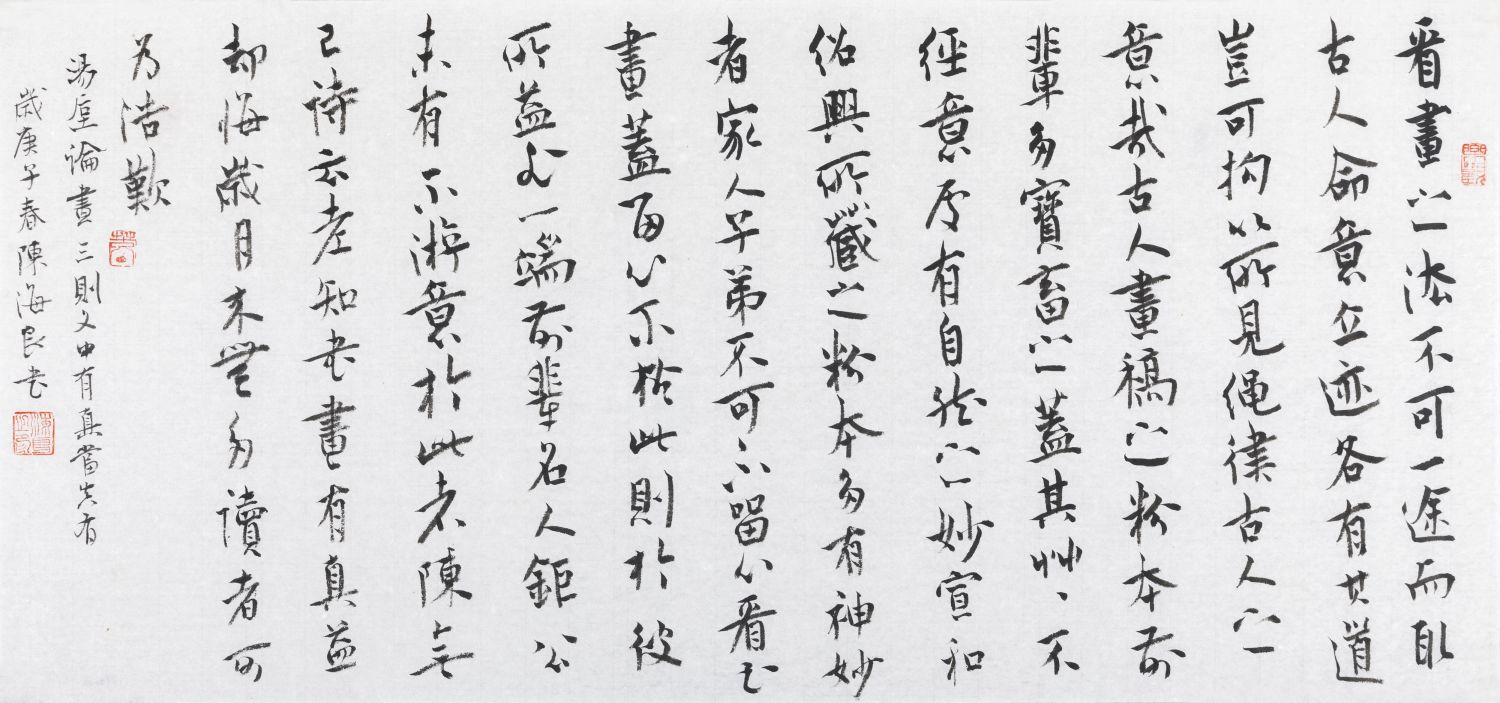 看畫之法不可一途而取
古人命意立迹各有其道
豈可拘以所見繩律古人之
意哉古人畫稿之粉本前
輩多寶畜之蓋其艸、不
經意處有自然之妙宣和
紹興所藏之粉本多有神妙
者家人子弟不可、不留心看
畫蓋留心不於此則於彼
所益非一端前輩名人鉅公
未有不游意於此者陳無
己詩云老知書畫有真益
却悔歲月來無多讀者可
為浩歎
湯垕論畫三則文中有真
歲庚子春陳海良書